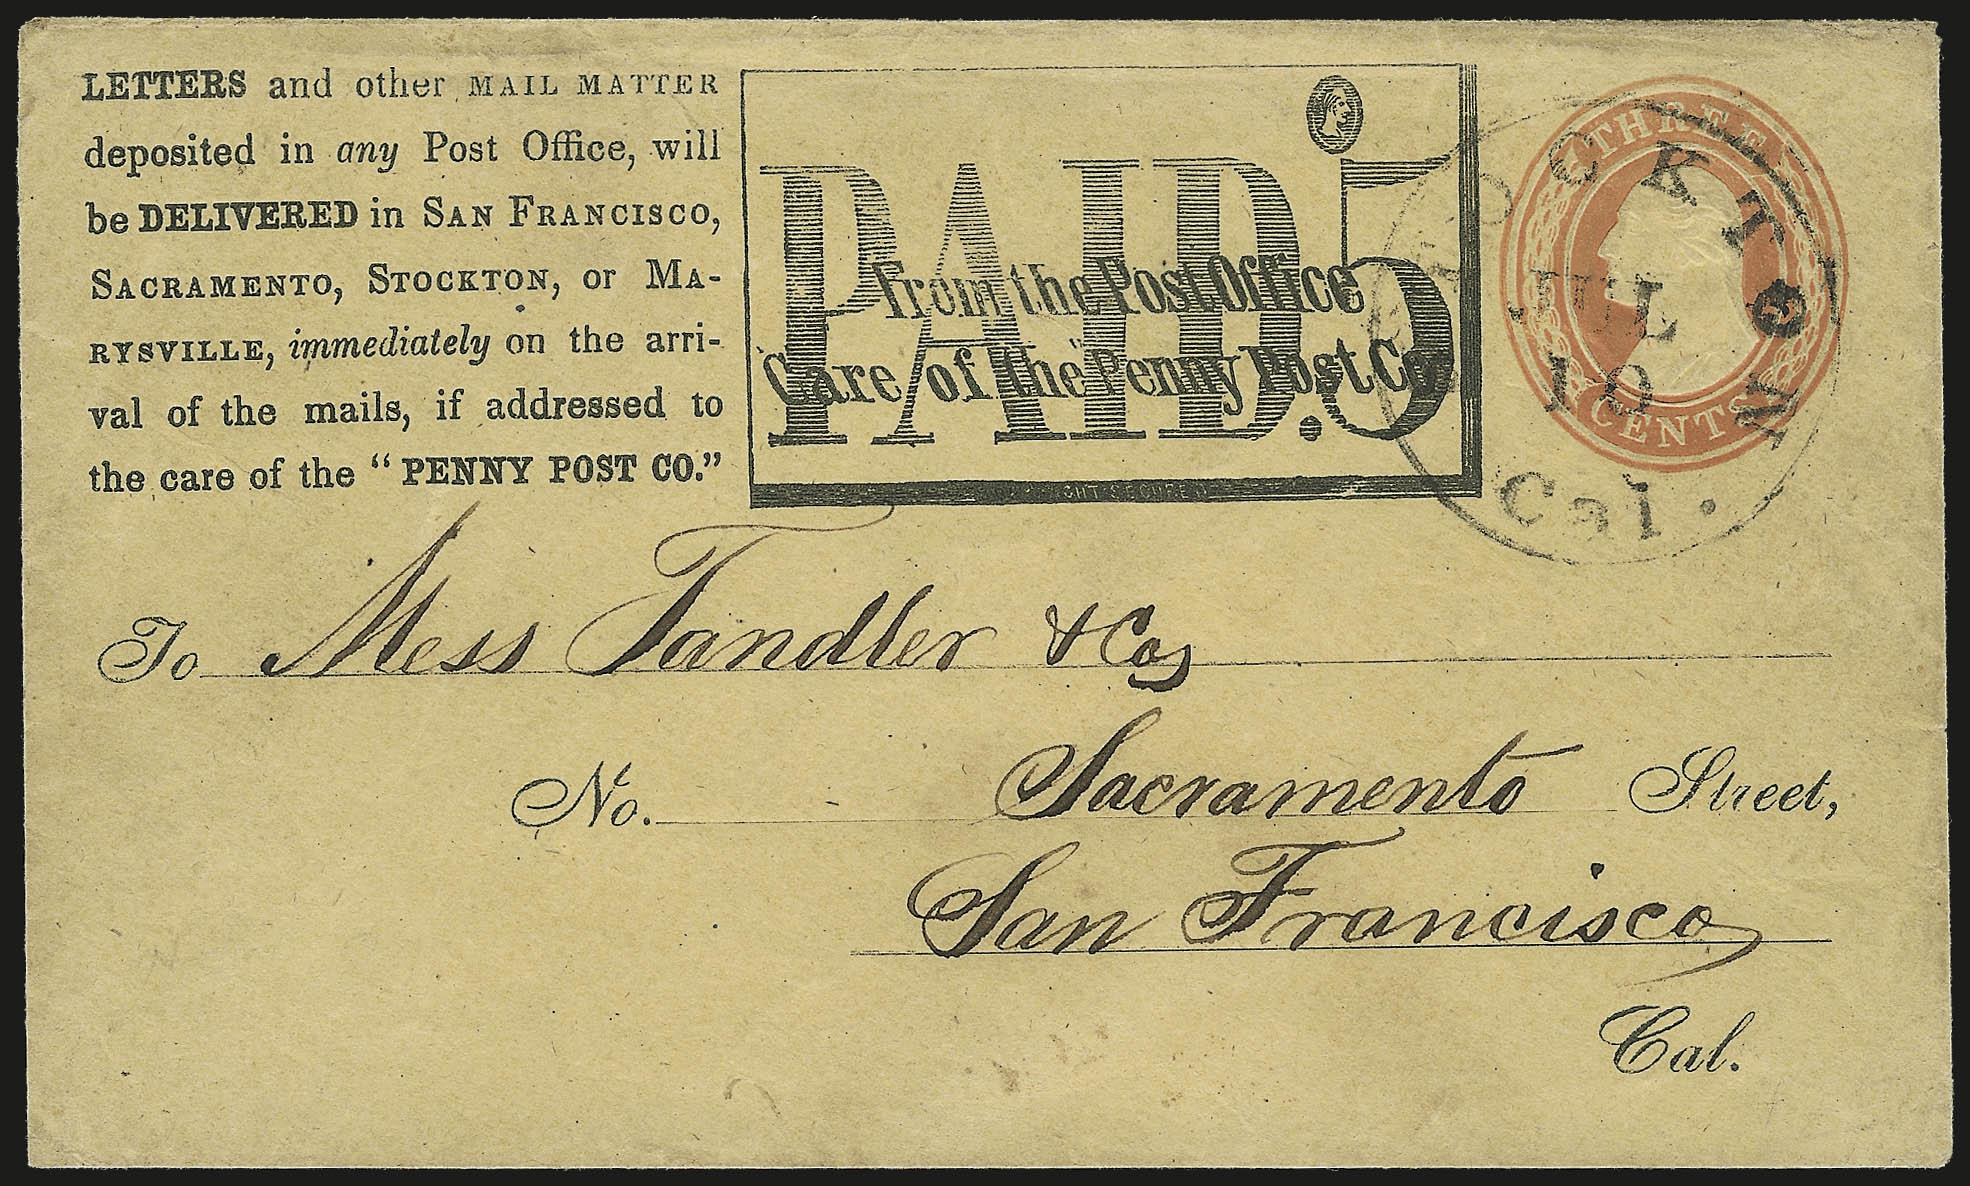 LETTERS and other MAIL MATTER
deposited in any Post Office, will
be DELIVERED in SAN FRANCISCO,
SACRAMENTO, STOCKTON, or MA-
RYSVILLE, immediately on the arri-
val of the mails, if addressed to
the care of the “ PENNY POST CO.”
PAID. 5
From the Post Office
Care of the Penny Post Co
THREE
CENTS
STOCKTON
JUL
10
Cal.
To Mess Tandler & Co
No. Sacramento Street,
San Francisco
Cal.